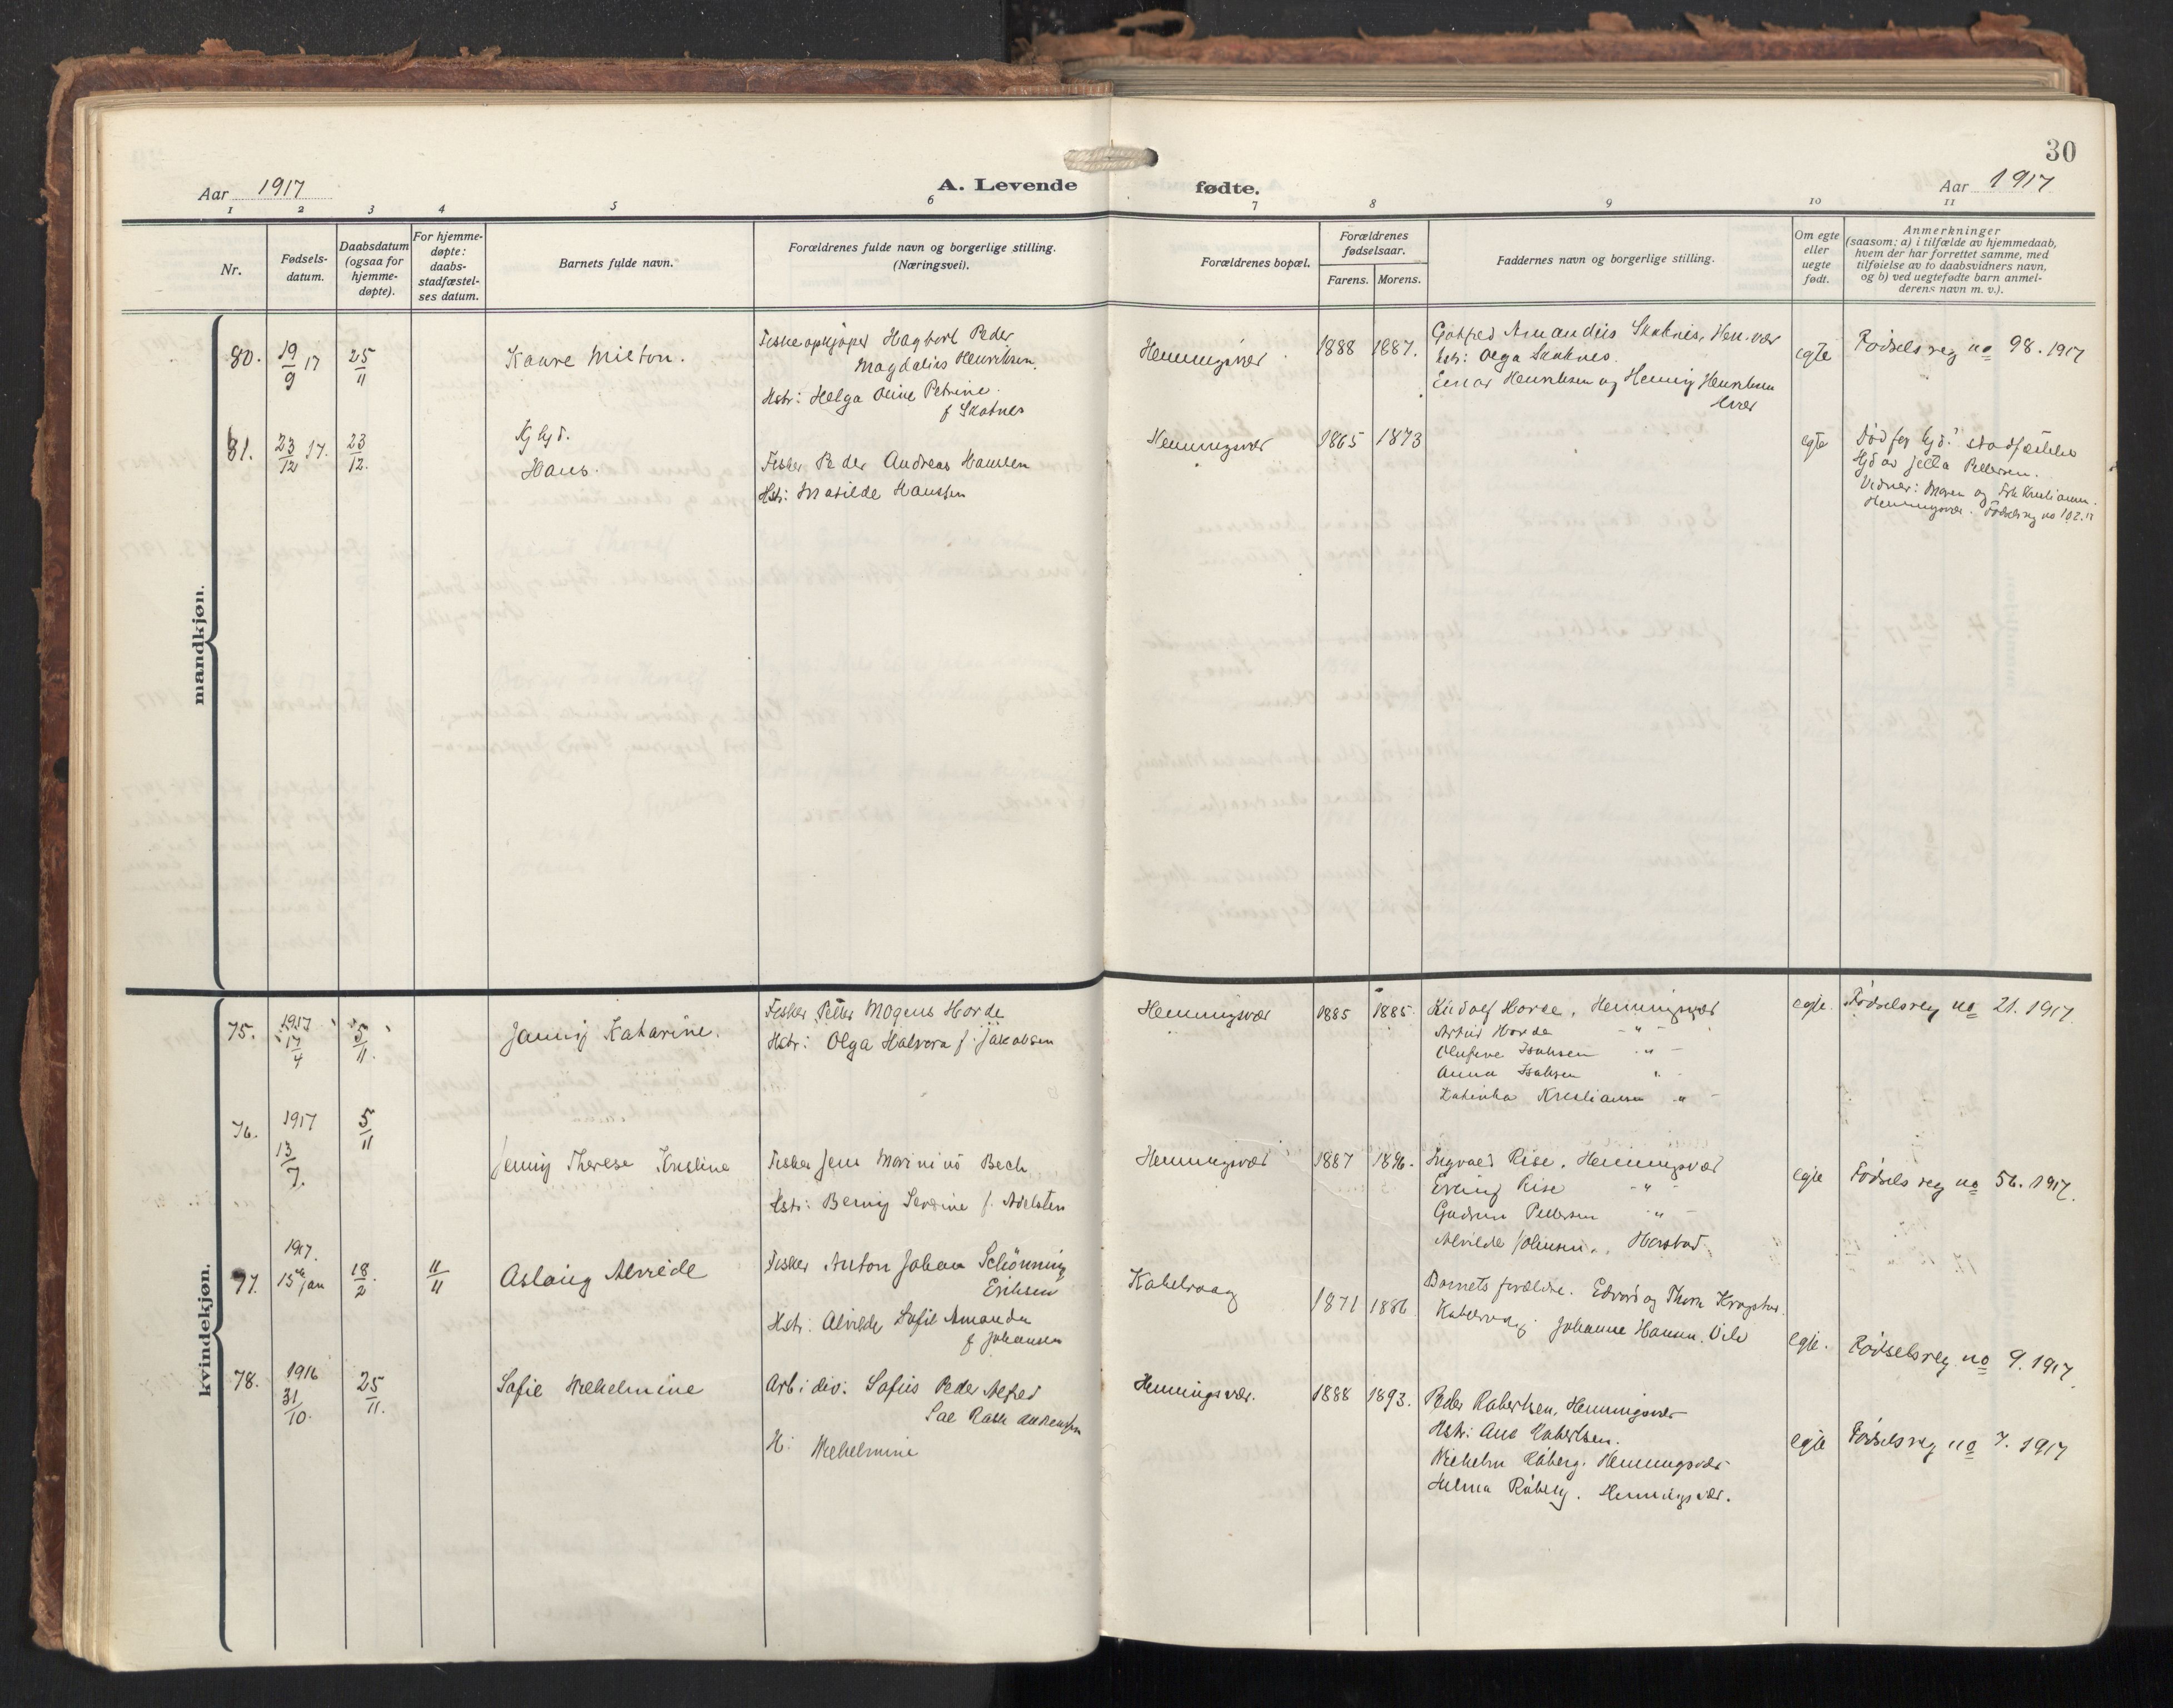 30
Aar 1917
A. Levende
fødte.
Aar 1917
1 2 3 4 5 6 7 8 9 10 11
Nr.
Fødsels-
datum.
Daabsdatum
(ogsaa for
hjemme-
døpte).
For hjemme-
døpte:
daabs-
stadfæstel-
ses datum.
Barnets fulde navn.
Forældrenes fulde navn og borgerlige stilling.
(Næringsvei).
Forældrenes bopæl.
Forældrenes
fødselsaar.
Farens. Morens.
Faddernes navn og borgerlige stilling.
Om egte
eller
uegte
født.
Anmerkninger
(saasom: a) i tilfælde av hjemmedaab,
hvem der har forrettet samme, med
tilføielse av to daabsvidners navn,
og b) ved uegtefødte barn anmel-
derens navn m. v.).
maandkjøn.
80.
19/9 17
25/11
Kaare Milton.
Fiskeopkjøper Hagbart Peder
Magdalius Henriksen.
Hstr: Helga Oline Petrine
f Skotnes
Henningsvær
1888 1887.
Gotfred Amandus Skotnes, Hen.vær
Hstr: Olga Skotnes.
Einar Henriksen og Henny Henriksen
Hvær
egte
Fødselsreg no 98. 1917
81.
23/12 17.
23/12.
Hj
Hans.
Fisker Peder Andreas Hansen
Hstr: Matilde Hanssen
Henningsvær
1865 1873
egte
Død før stadfæstelse
Hjd av Jetta Pettersen.
Vidner: Maren og Kristiansen.
Henningsvær. Fødselsreg no 102.17
kvindekjøn.
75.
1917
17/4
5/11.
Jenny Katarine.
Fisker Petter Mogens Horde
Hstr: Olga Halvora f. Jakobsen
Henningsvær
1885 1885.
Rudolf Horde, Henningsvær
Artur Horde - " -
Olufine Isaksen - " -
Anna Isaksen " -
Katinka Kristiansen "
egte.
Fødselsreg no 21. 1917.
76.
1917
13/7.
5/11
Jenny Therese Kristine
Fisker Jens Marinius Bech
Hstr: Berny Severine f. Adelsten
Henningsvær
1887 1896.
Ingvald Rise, Henningsvær
Erling Rise - " -
Gudrun Pettersen - " -
Alvilde Johnsen, Harstad.
egte
Fødselsreg no 56. 1917.
77.
1917.
15de jan
18/2.
11/11
Aslaug Alvilde
Fisker Anton Johan Schönning
Eriksen
Hstr: Alvilde Sofie Amanda
f Johansen
Kabelvaag
1871 1886.
Barnets forældre. Edvard og Thora
Kabelvaag. Johanne Hansen.
egte.
Fødselsreg no 9. 1917.
78.
1916
31/10.
25/11.
Sofie Wilhelmine
Arb. i div. Sofus Peder Alfred
H: Wilhelmine
Henningsvær.
1888 1893.
Peder Robertsen, Henningsvær
Hstr: Ane Robertsen.
Wilhelm Råberg. Henningsvær
Helma Råberg. Henningsvær.
egte
Fødselsreg no 7. 1917